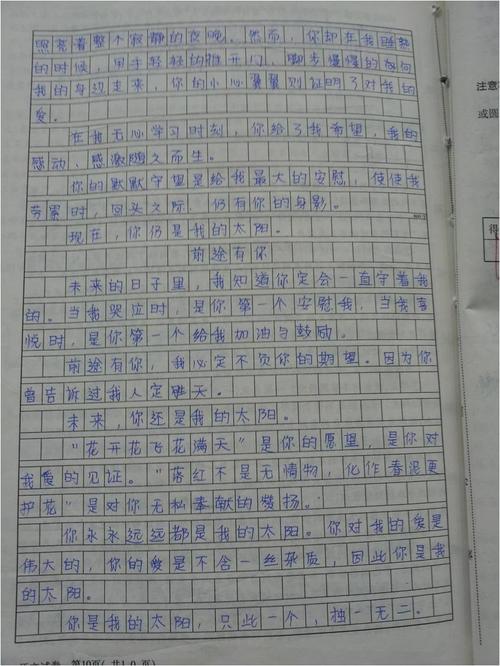 照亮着整个寂静的夜晚。然而，你却在我睡熟
的时候，用手轻轻的推开门，脚步慢慢的如向
我的身边走来，你的小心翼翼则证明了对我的
爱。
在我无心学习时刻，你给了我希望，我的
感动、感激随之而生。
你的默默守望是给我最大的安慰，使使我
劳累时，回头之际，仍有你的身影。
现在，你仍是我的太阳。
前途有你
未来的日子里，我知道你定会一直守着我
的。当我哭泣时，是你第一个安慰我，当我喜
悦时，是你第一个给我加油与鼓励。
前途有你，我必定不负你的期望。因为你
曾告诉过我人定胜天。
未来，你还是我的太阳。
“花开花飞花满天”是你的愿望，是你对
我爱的见证。“落红不是无情物，化作春泥更
护花”是对你无私奉献的赞扬。
你永永远远都是我的太阳。你对我的爱是
伟大的，你的爱是不含一丝杂质，因此你是我
的太阳。
你是我的太阳，只此一个，独一无二。
第10页（共10页）
注意
或圆
得